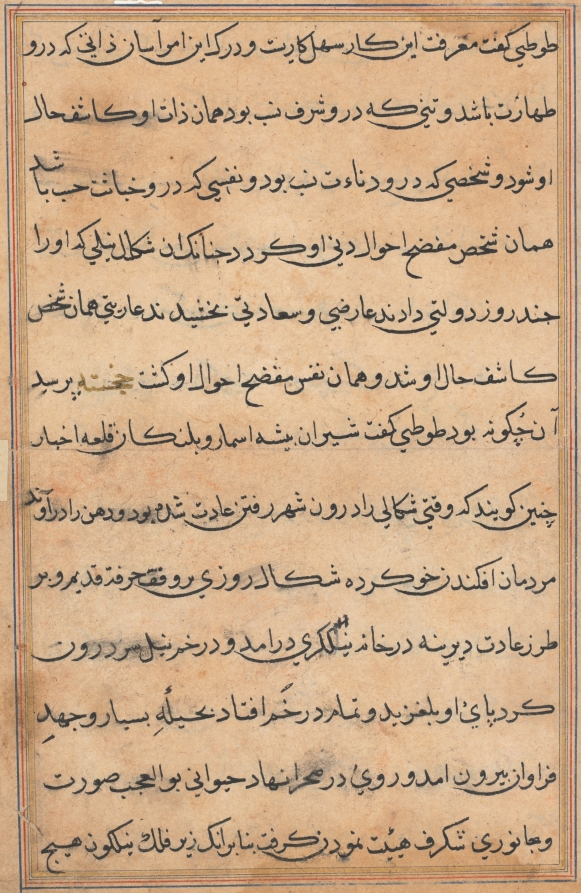 طوطی کفت معرفت این کار سهل کاریت و درک این امر آسان ذاتی که درو
طهارت باشد و تنی که در و شرف نسب بود همان ذات او کاشف حال
او شود و شخصی که در و دناءت نسب بود و نفسی که در و خباثت حسب باشد
همان شخص مفضح احوال دنی او کردد چنانک ان شکال نیلی که او را
چند روز دولتی دادند عارضی و سعادتی بخشیدند عاریتی همان شخص
کاشف حال او شد و همان نفس مفضح احوال او کشت خجسته پرسید
آن چکونه بود طوطی کفت شیران بیشه اسمار و پلنکان قلعه اخبار
چنین کویند که وقتی شکالی را درون شهر رفتن عادت شده بود و دهن را در آوند
مردمان افکندن خو کرده شکال روزی بر وفق حرفة قدیم و بر
طرز عادت دیرینه در خانه نیلکری در امد و در خم نیل سر درون
کرد پای او بلغزید و تمام در خم افتاد بحیله بسیار و جهد
فراوان بیرون امد و روی در صحرا نهاد حیوانی بوالعجب صورت
و جانوری شکرف هیئت نمودن کرفت بنابرانک زیر فلک نیلکون هیچ